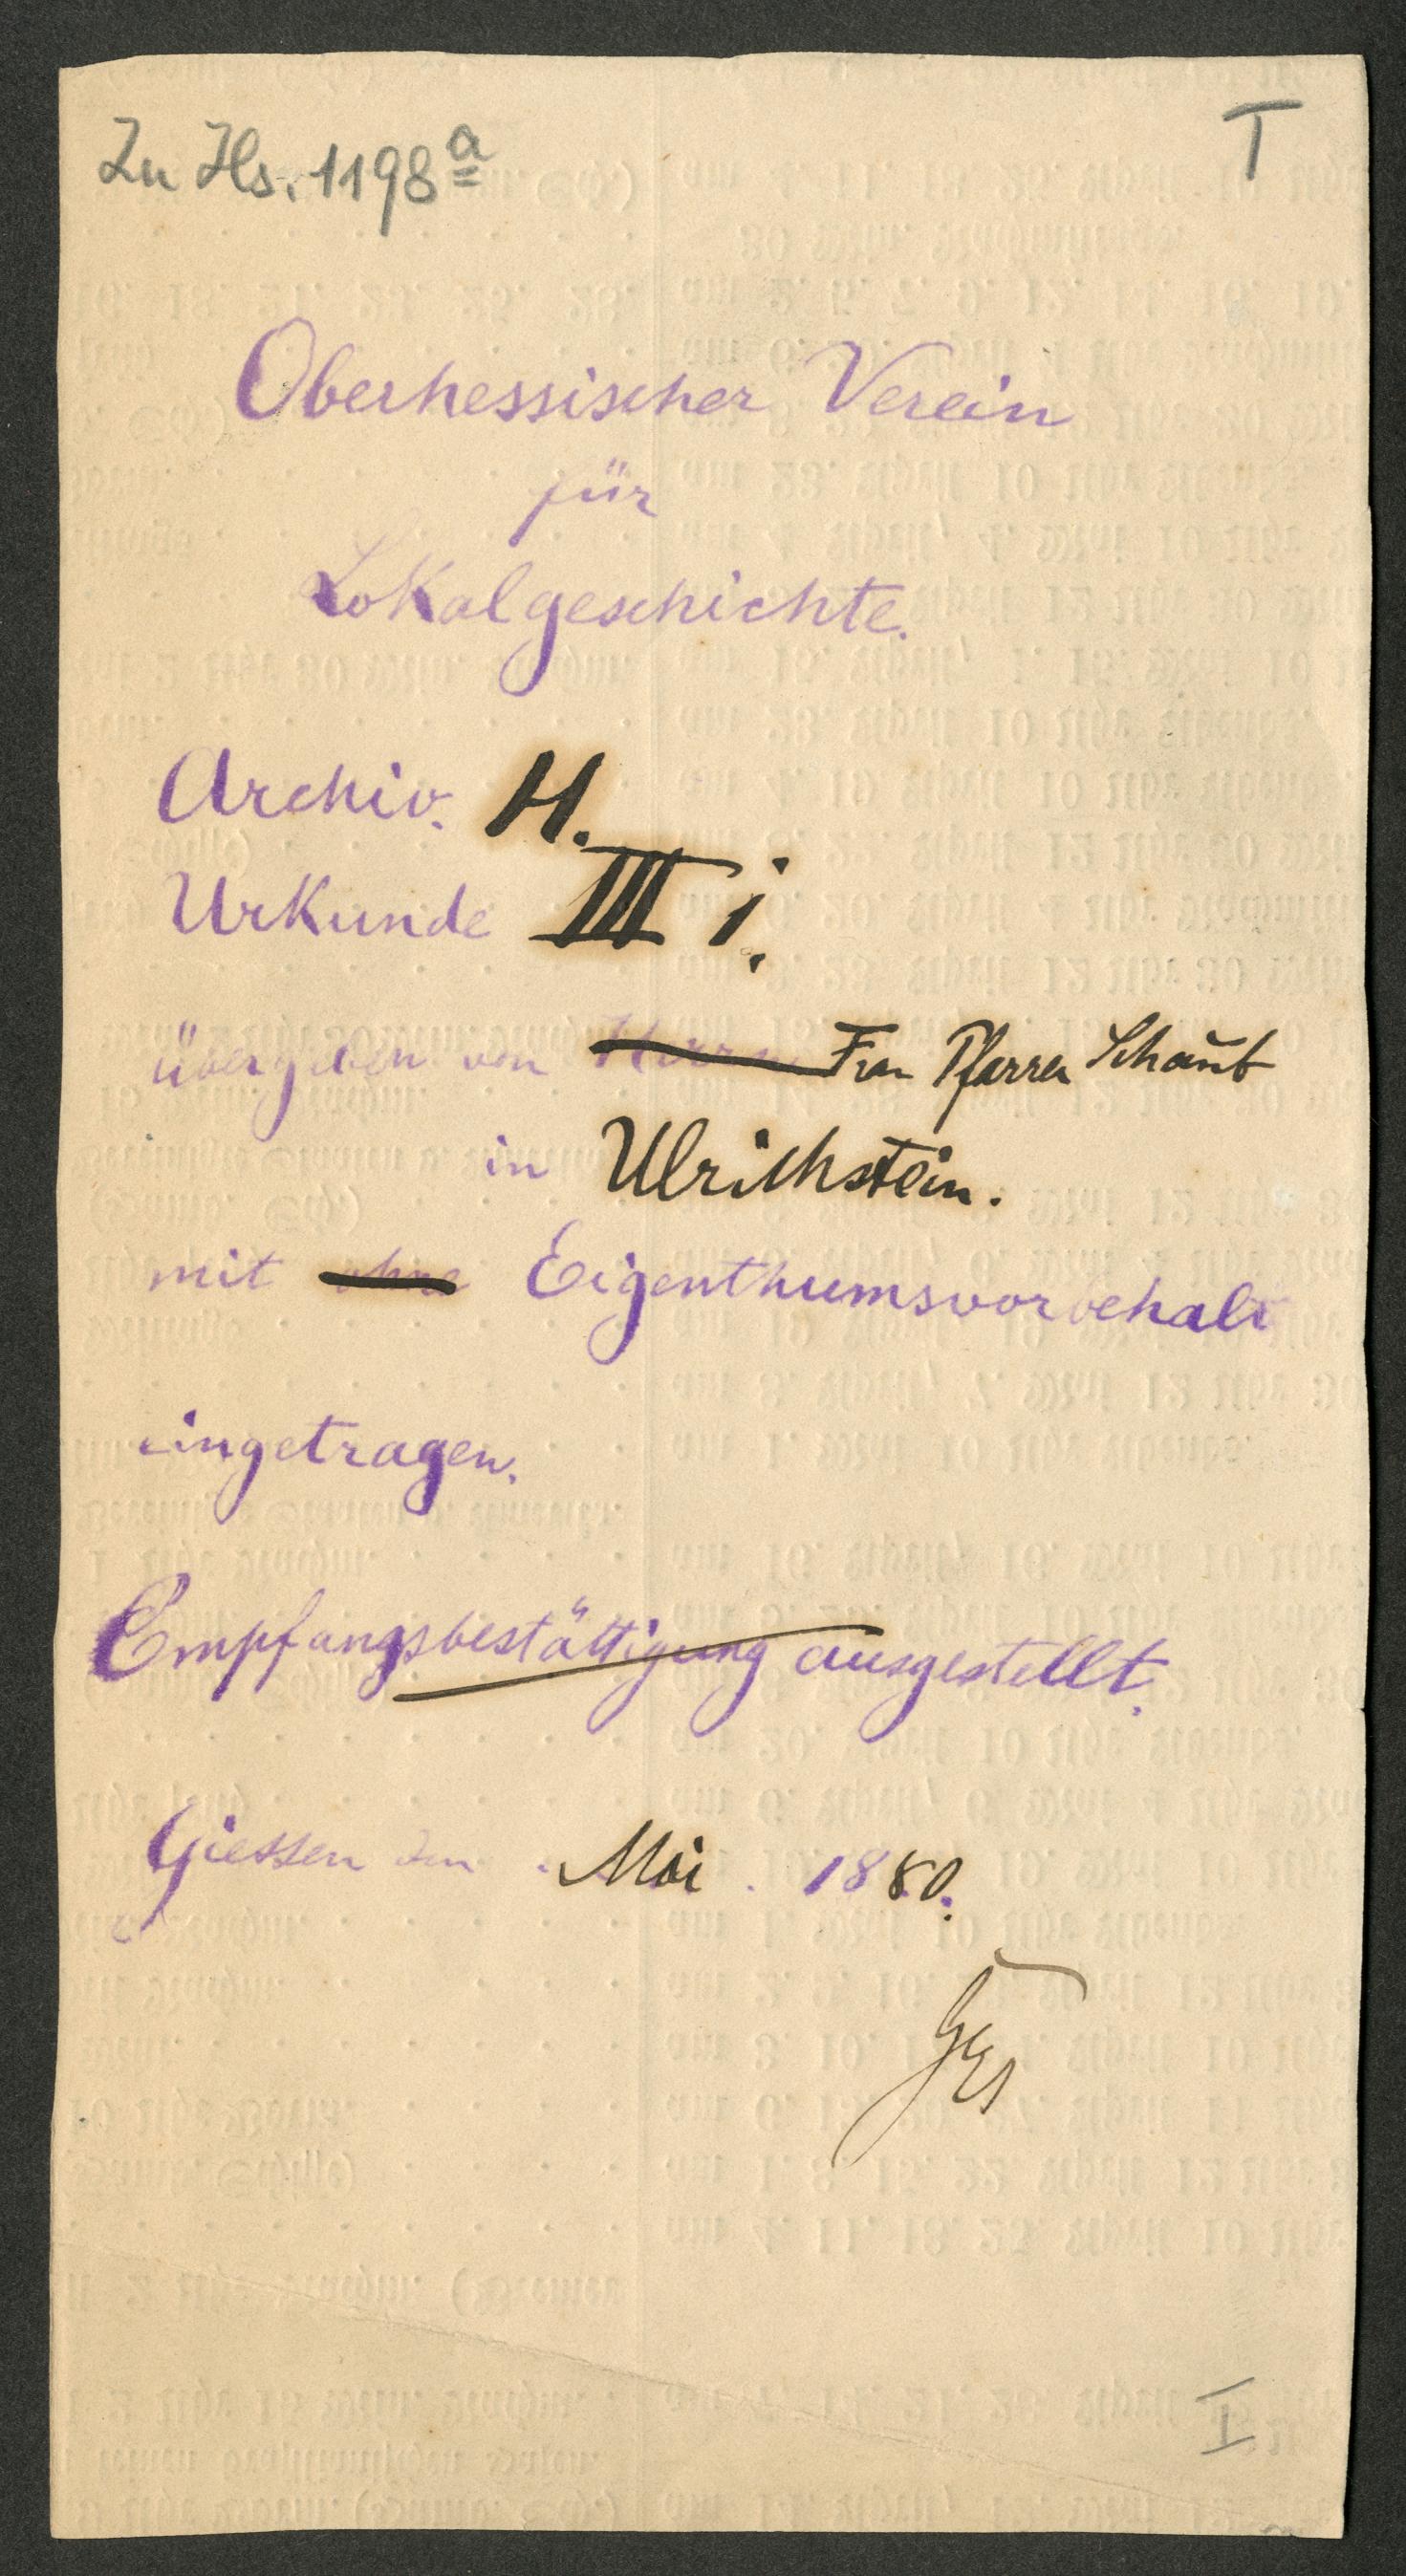 Zu Hs. 1198a
I
Oberhessischer Verein
für
Lokalgeschichte.
Archiv. H.
Urkunde III i.
übergeben von Herrn Frau Pfarrer Schaub
in Ulrichstein.
mit ohne Eigenthumsvorbehalt
eingetragen.
Empfangsbestättigung ausgestellt.
Giessen den Mai 1880.
I